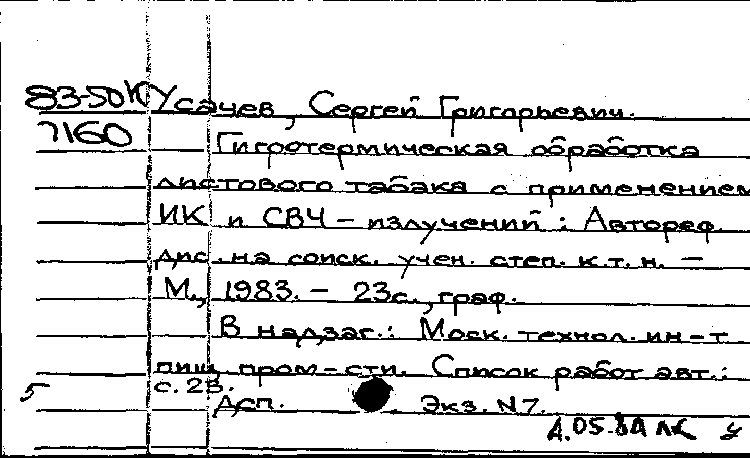 83-50К Усачев, Сергей Григорьевич.
7160 Гигротермическая обработка
листового табака с применением
ИК и СВЧ – излучений : Автореф.
дис. на соиск. учен. степ. к.т.н. –
М., 1983. – 23с., граф.
В надзаг.: Моск. технол. ин-т
пищ. пром-сти. Список работ авт.:
5 с. 23.
Дсп. Экз. N7.